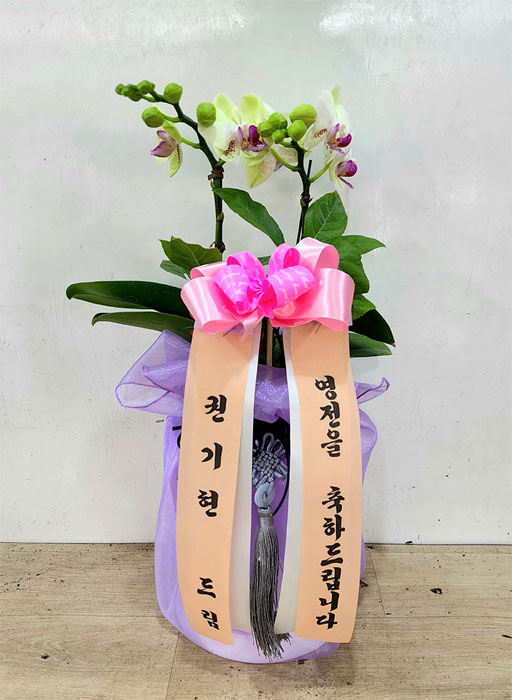 영전을 축하드립니다
권기현 드림